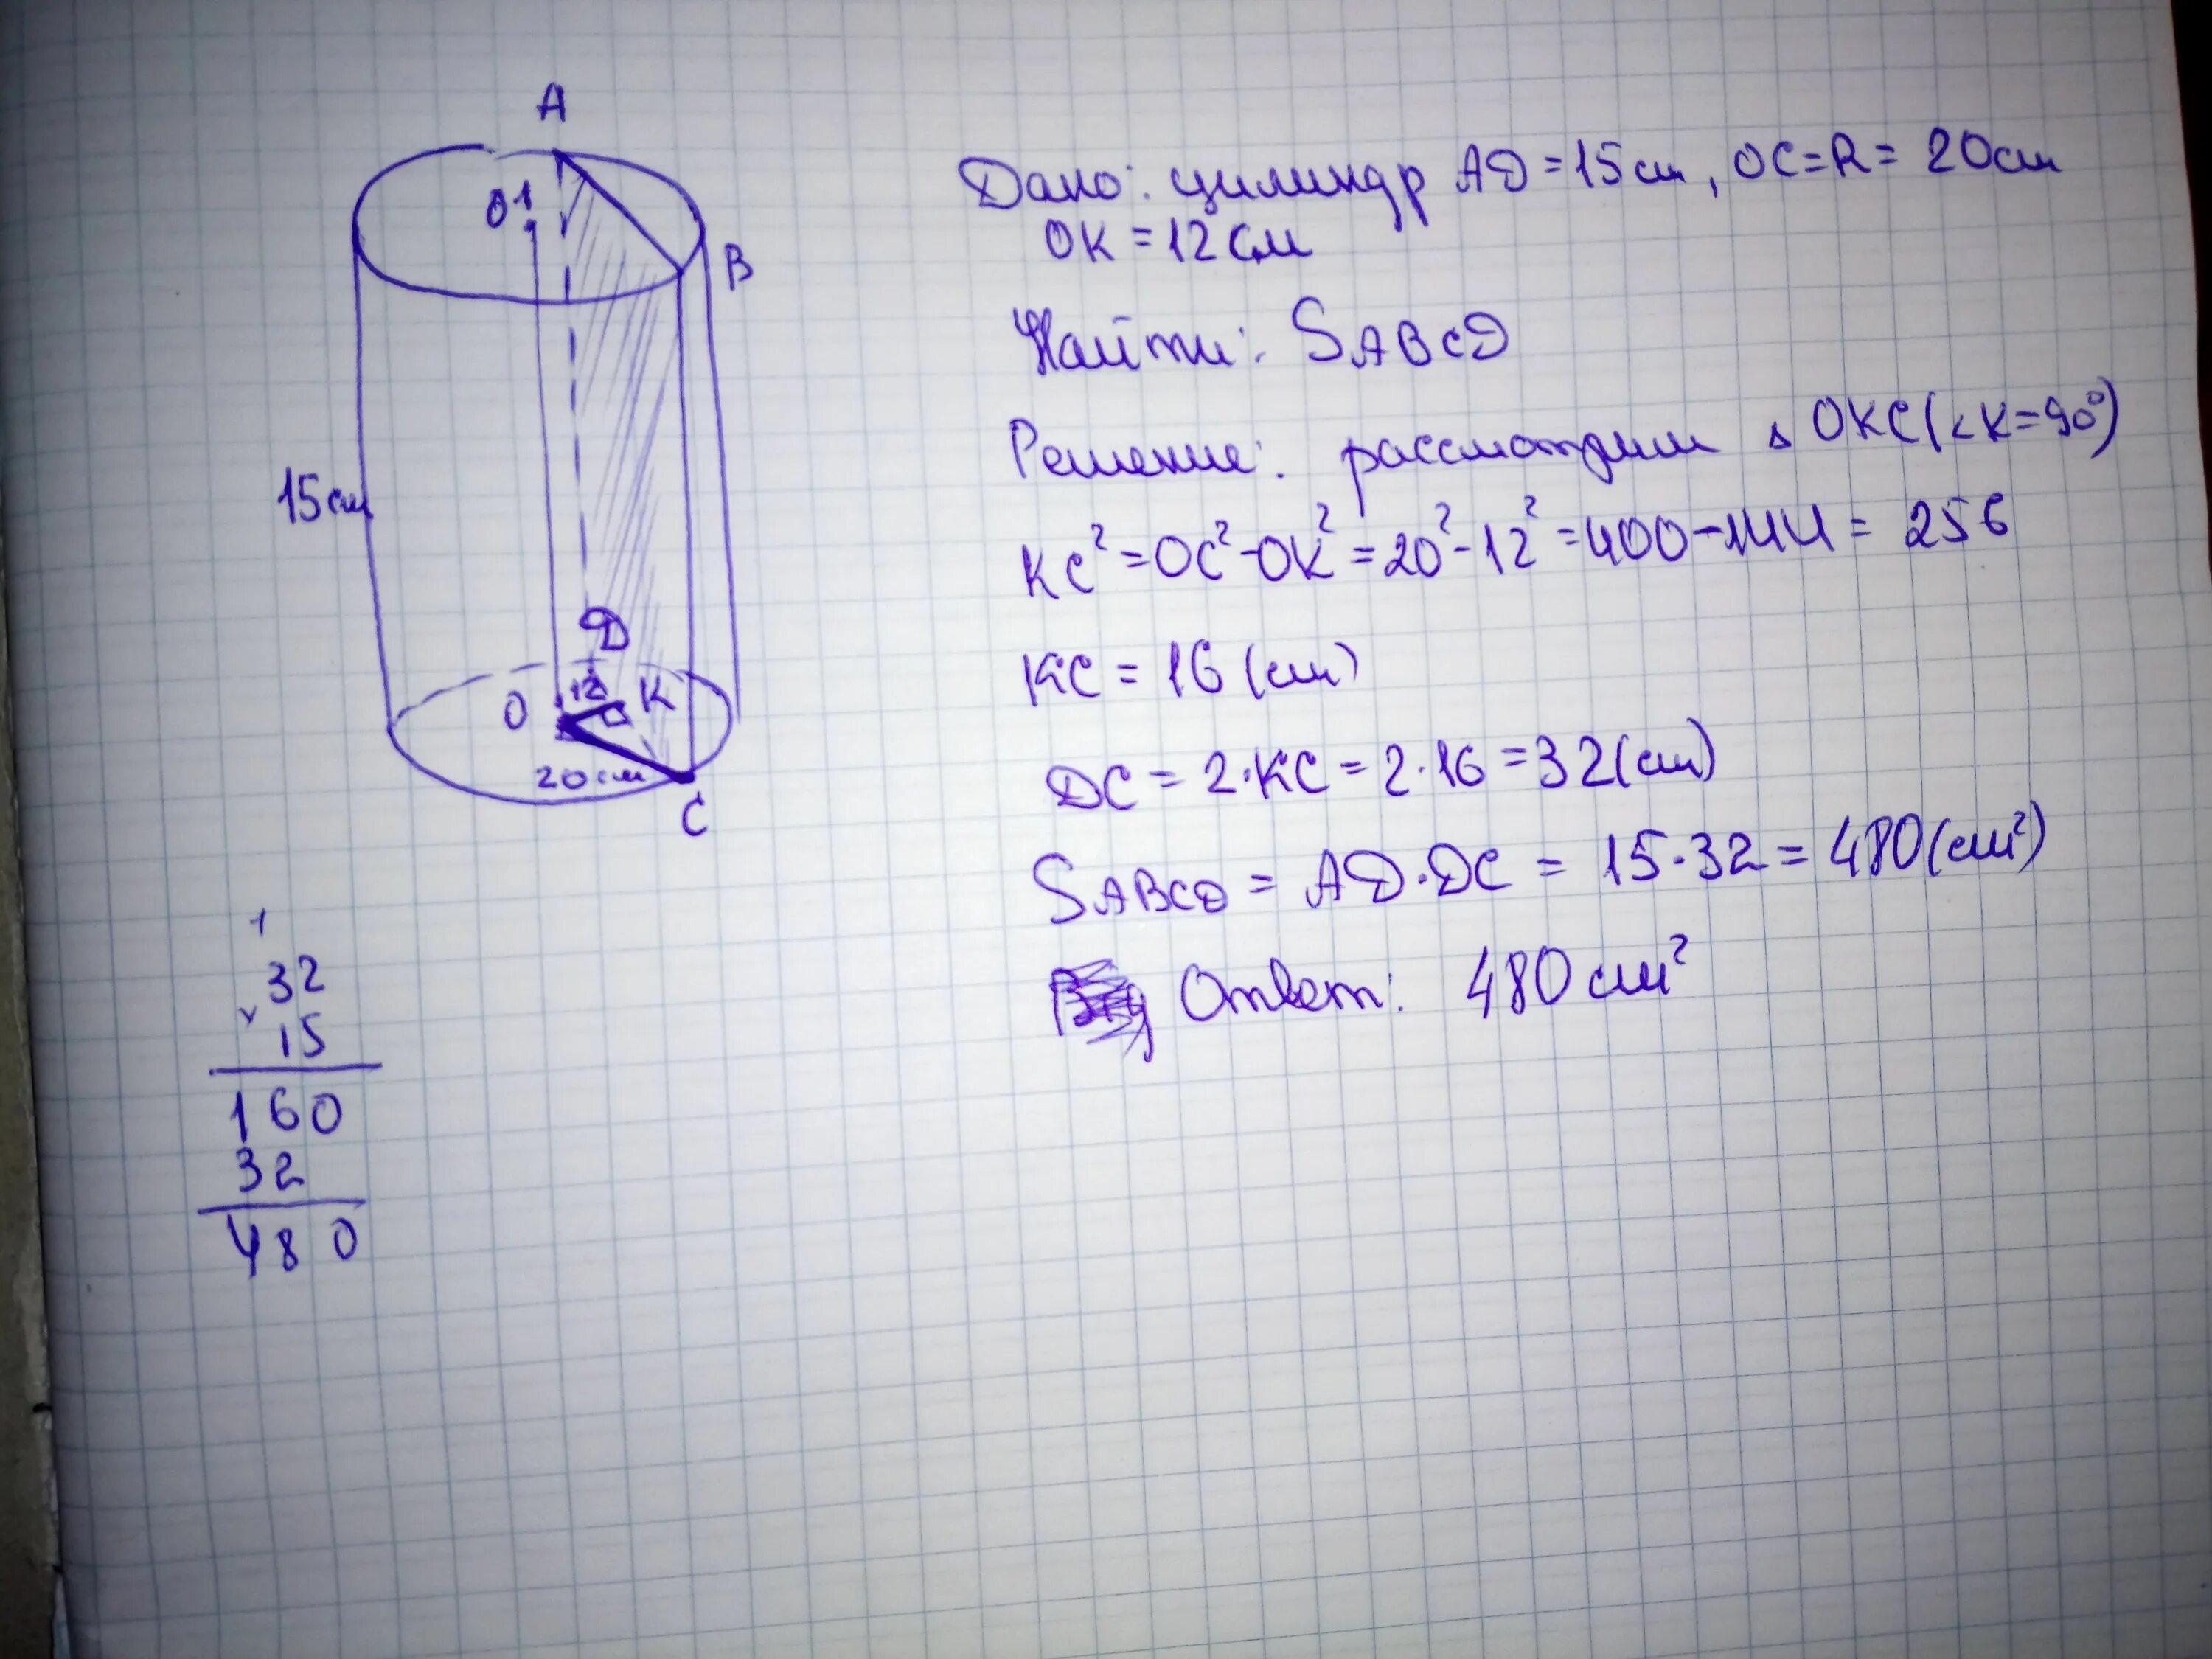 A
O1
B
15см
D
12
K
O
20см
C
Дано: цилиндр AD = 15см, OC=R= 20см
OK = 12 см
Найти: SABCD
Решение: рассмотрим △ OKC(<K=90°)
KC²=OC²-OK²=20²-12²=400-144= 256
KC = 16 (см)
DC = 2·KC = 2·16 =32(см)
SABCD = AD·DC = 15·32= 480(см²)
Ответ: 480 см²
1
32
× 15
160
32
480